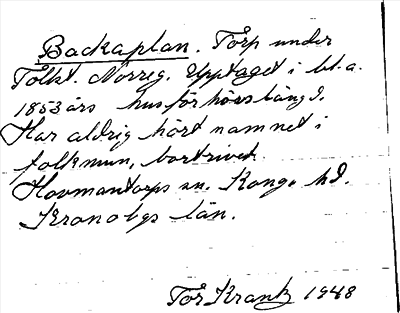 Backaplan. Törp under
Tolkt. Norreg. Upptaget i bl.a.
1853 års husförhörslängd.
Har aldrig hört namnet i
folkmun, bortrivet.
Hovmantorps sn. Konga hd.
Kronobgs län.
Tor Krantz 1948